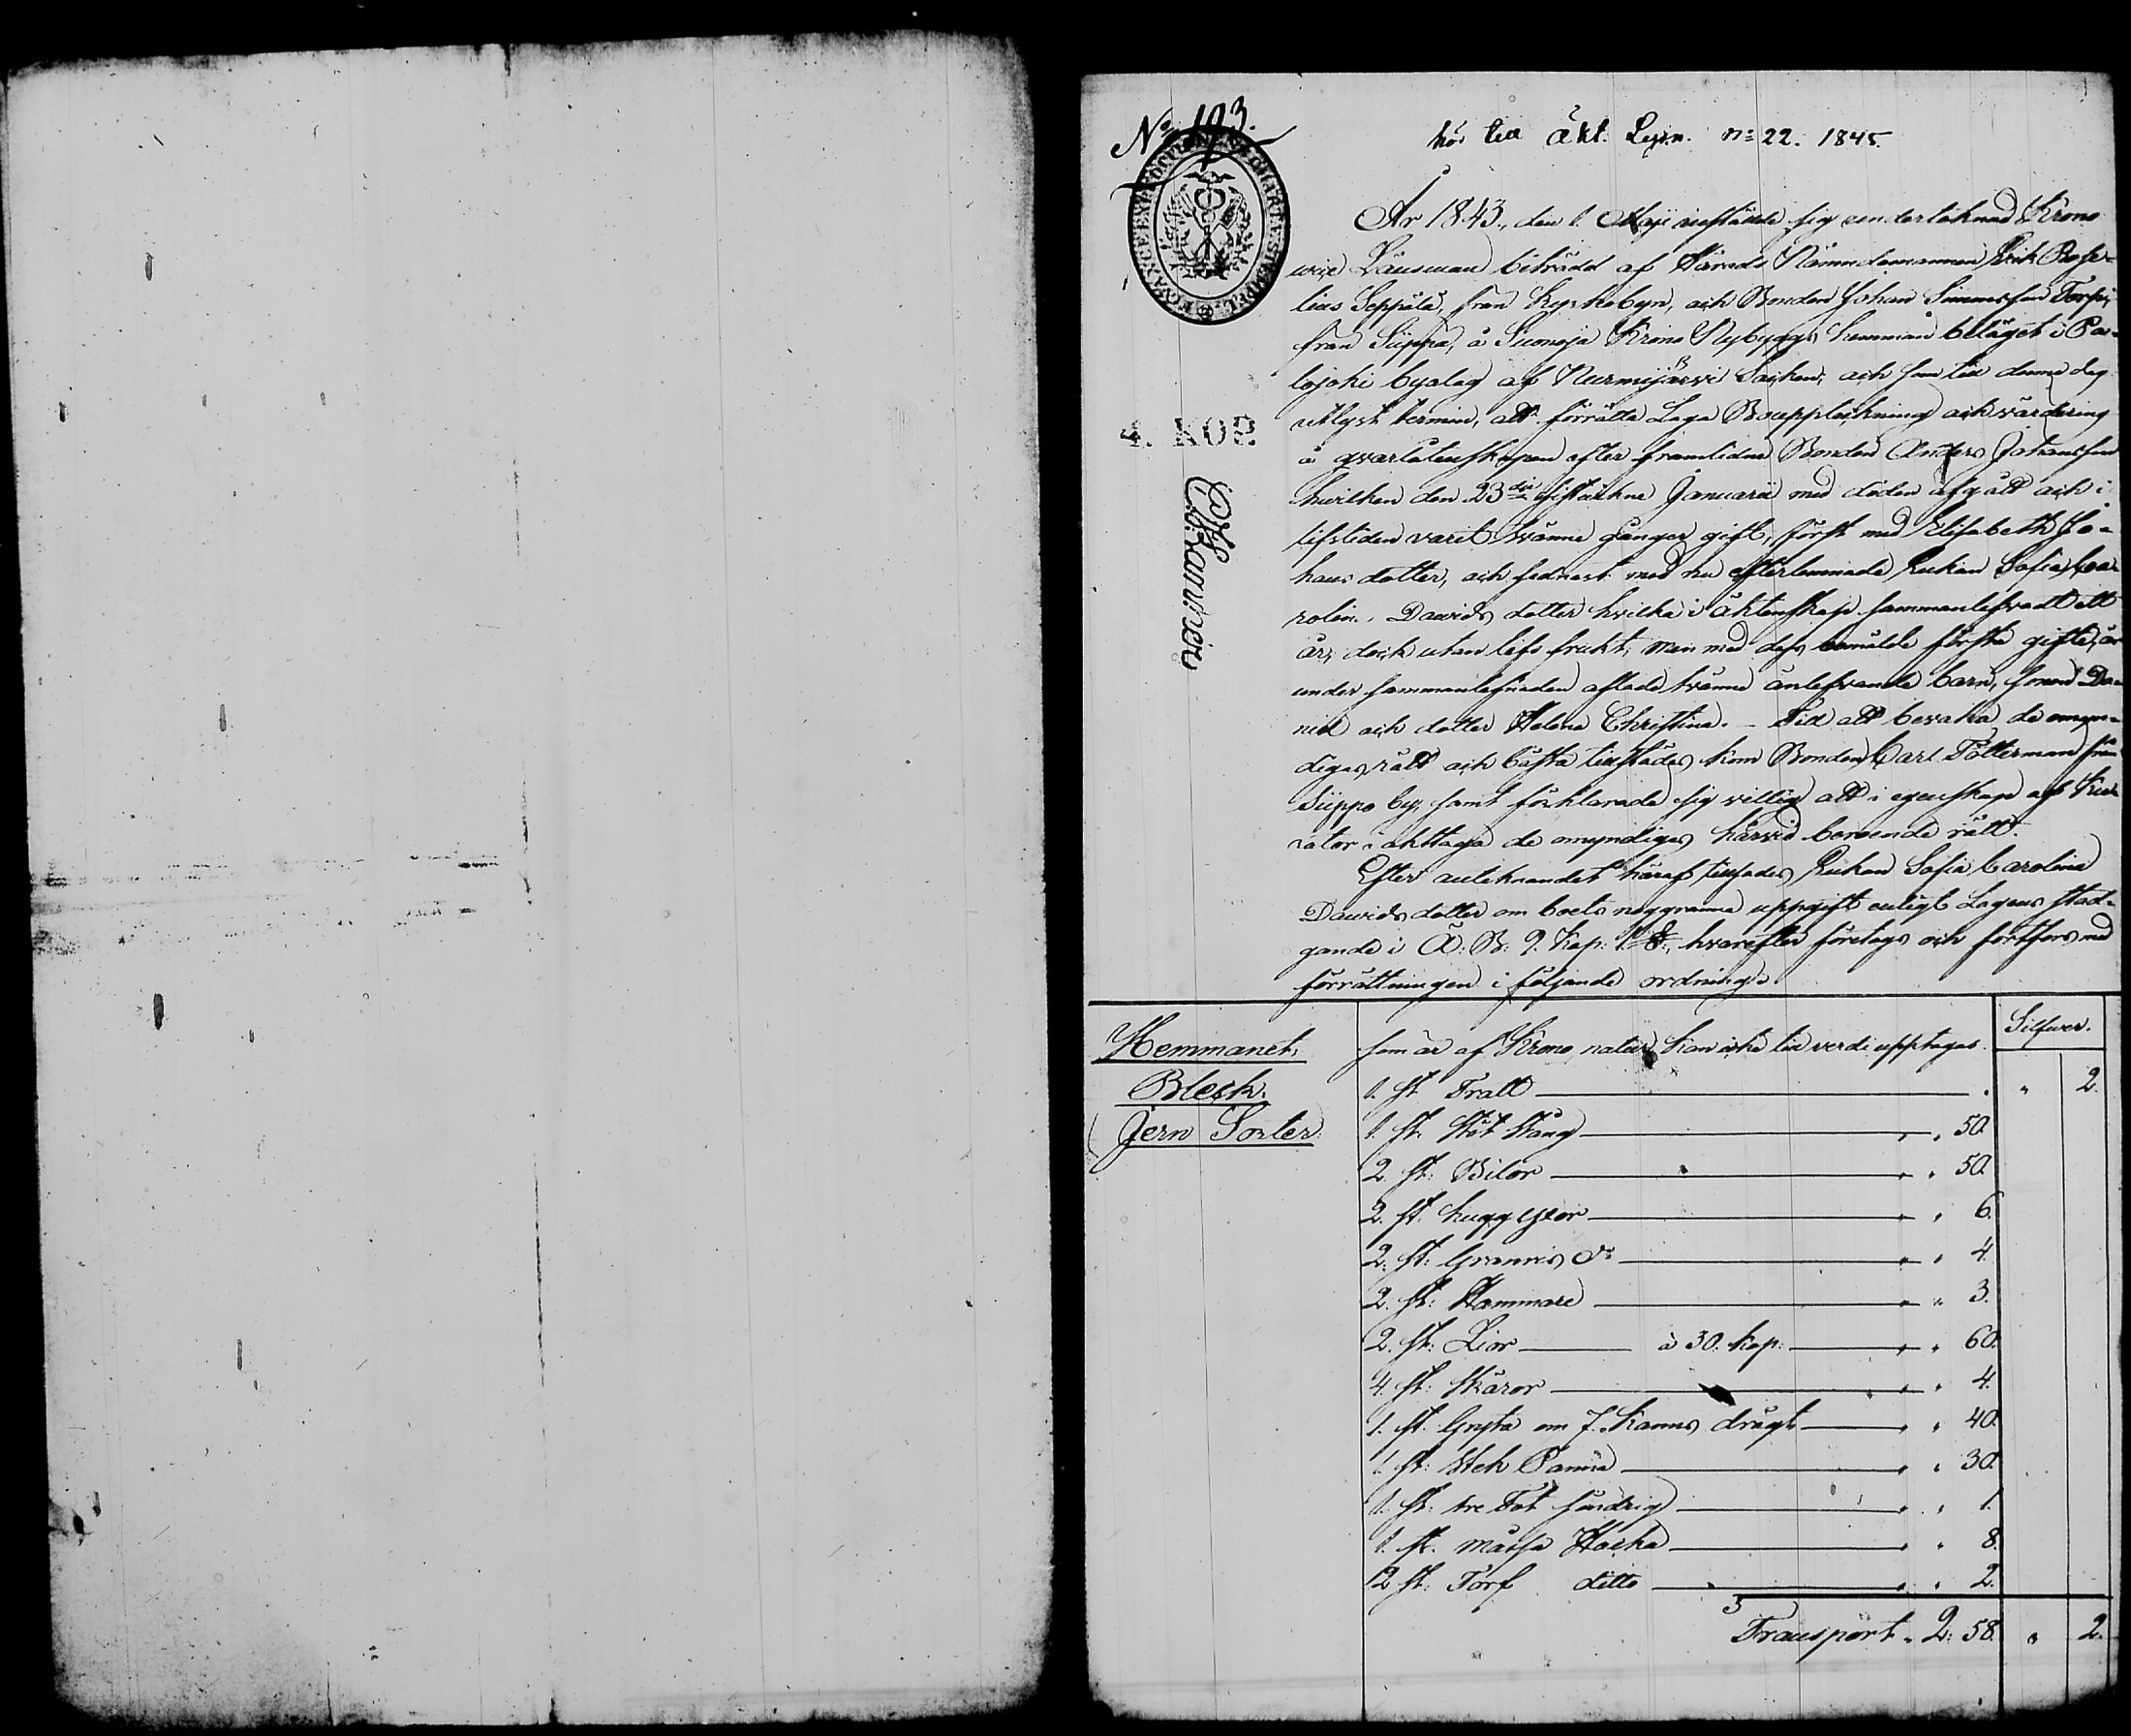 No 193.
hör till Äkt. Legn. No 22. 1845.
4. KOP.
År 1843, den 1. Maji instälde sig underteknad Krono
Länsman biträdd af Härads Nämndemannen Erik
lius Seppälä, från Kyrkobyn, och Bonden Johan Simonsson Torpi,
från Siippo, å Suonoja Krono Nybyggs hemman beläget i Pa-
lojoki byalag af Nurmijärvi Socken, och som till denne dag
utlyst termin, att förrätta Laga Bouppteckning och värdering
å qvarlåtenskapen efter framlidne Bonden Anders Johansson
hvilken den 23die sistlidne Januarii med döden afgått och i
lifstiden varit tvänne gånger gift, först med Elisabeth Jo-
hans dotter, och sednast med nu efterlemnade Enkan Sofia Ca-
rolin. Davids dotter hvilka i äktenskap sammanlefvadt ett
år, dock utan lifs frukt; men med dess bemälde första gifte, är
under sammanlefnaden aflade tvänne änlefvande barn, sonen Da-
niel och dotter Helena Christina. - Till att bevaka de omyn-
diges rätt och bästa tillstädes kom Bonden Carl Tötterman från
Siippo by, samt förklarade sig villig att i egenskap af Ku-
rator iakttaga de omyndiges härvid beroende rätt.
Efter anteknandet häraf tillsades Enkan Sofia Carolina
Davids dotter om boets noggranna uppgift enligt Lagens stad-
gande i Ä: B: 9. Kap: 1 §:, hvarefter företogs och fortfors med
förrättningen i följande ordning:
Silfver.
Hemmanet, som är af Krono natur kan icke till verde upptagas.
Bleck. 1. st Tratt " 2.
Jern Sorter. 1. st. Stöt Stång " " 50.
2. st: Bilor " " 50.
2. st. hugg yxor " " 6.
2. st: Granris do " " 4.
2. st: Hammare " " 3.
2. st: Lior à 30. kop: " " 60.
4. st: Skäror " " 4.
1. st. Gryta om 7. Kanns drägt " " 40.
1. st: Stek Panna " " 30.
1. st: tre Fot söndrig " " 1.
1. st. måssa Hacka " " 8.
2 st: Torf ditto " " 2.
Transport " 2: 58. " 2.